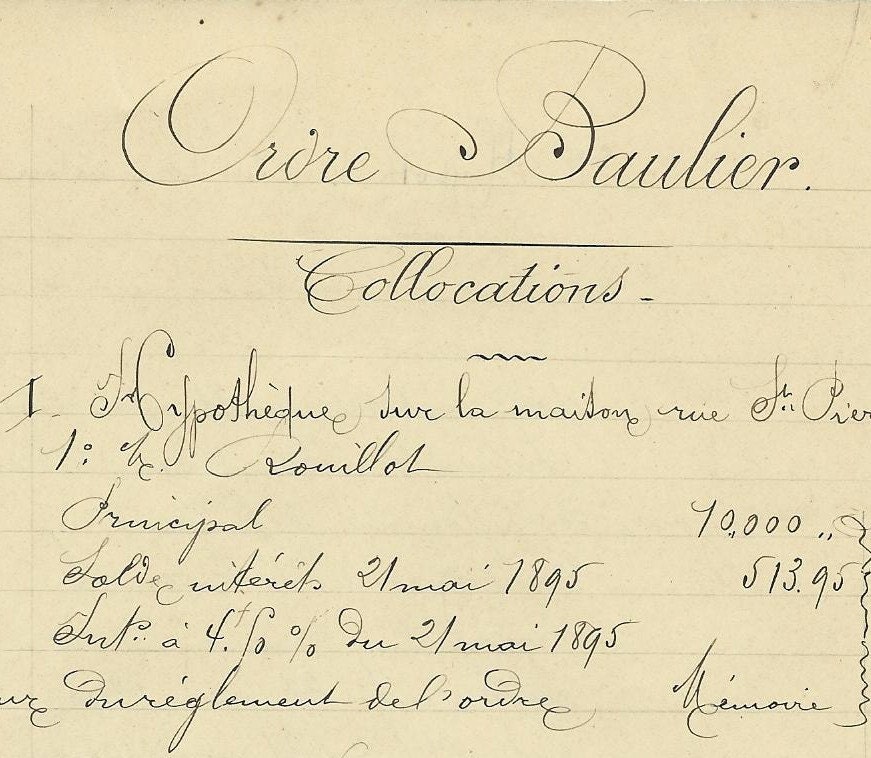 Ordre Baulier.
Collocations -
1. Hypothèque sur la maison rue St. Pier
1° M. Rouillot
Principal 10,000 „
Solde intérêts 21 mai 1895 513.95
Int. à 4. % du 21 mai 1895
du règlement de l'ordre Mémoire